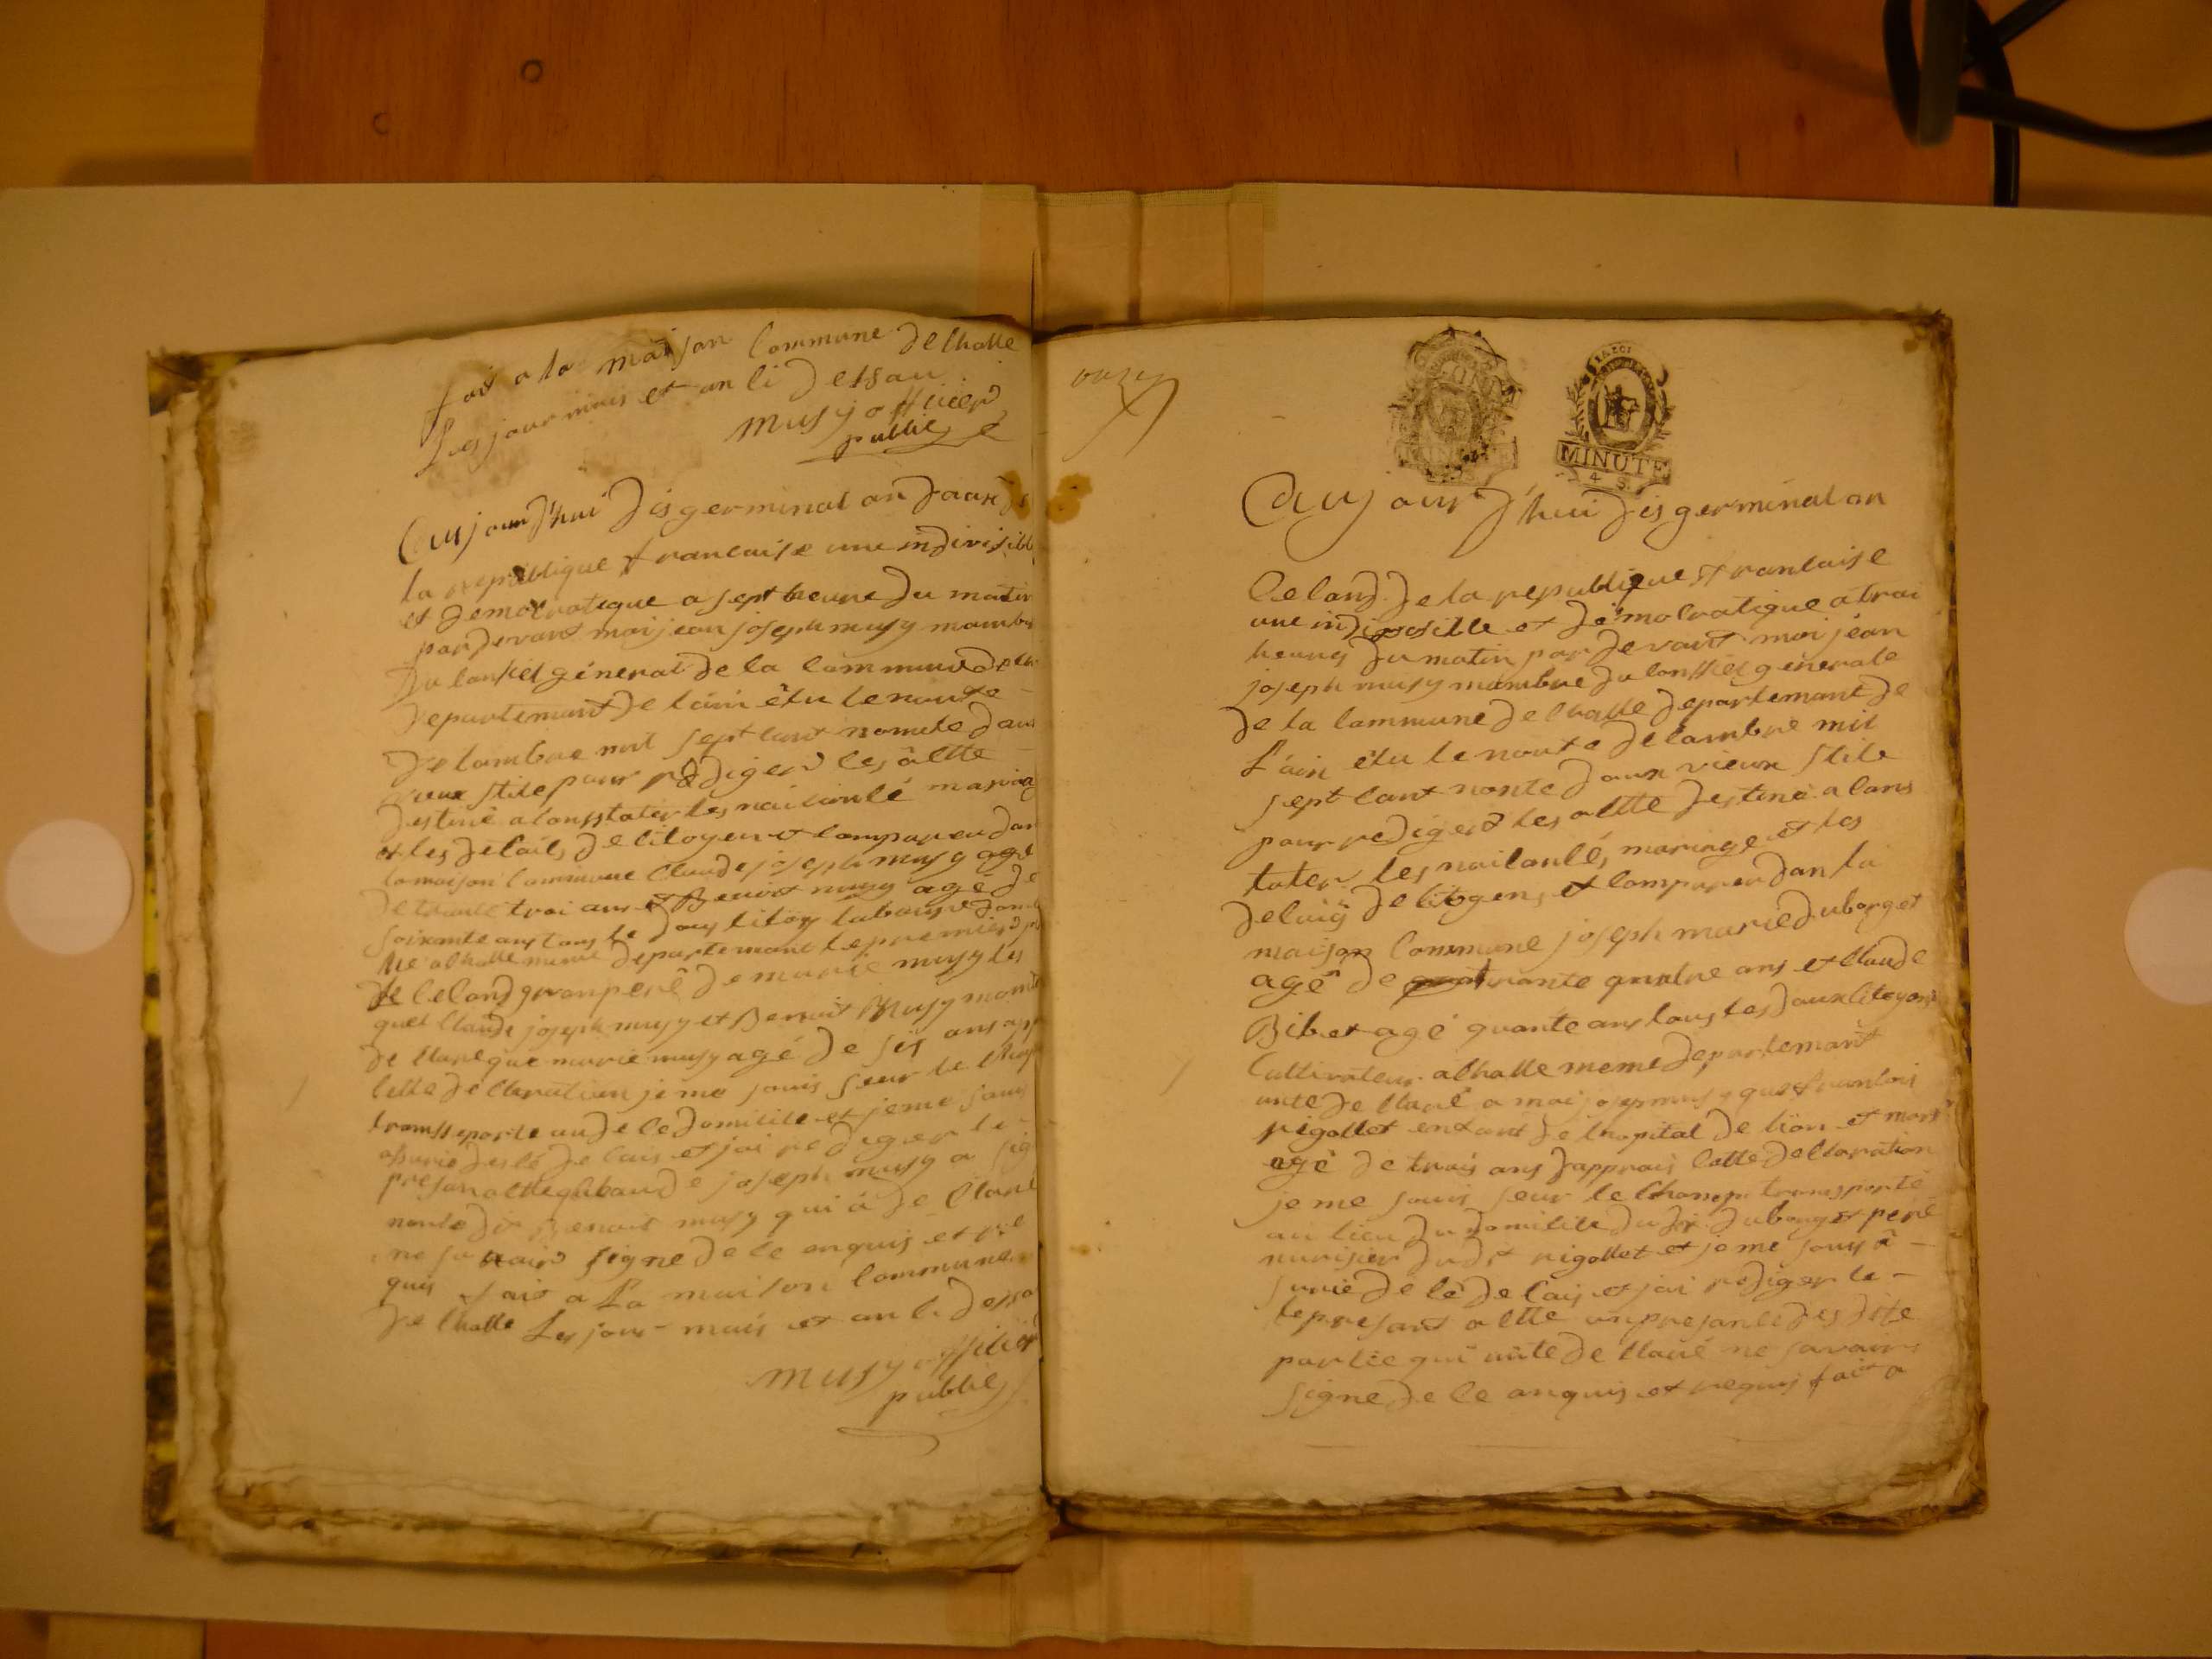 fait a la maison Commune de Challe
Les jour mois et an si dessau
musy officier
public
aujourd'hui dis germinal an daux de
la republique francaise une indivisible
et democratique a sept heure du matin
par devant moi jean joseph musy mambre
du consiel géneral de la commune de
departemant de lain élu le nonte
decambre mil sept cant nonente daux
vieux stile pour rediger les actte
destiné a consstater les naicancé mariag
et les decais de citoyen et compareu dan
la maison commune Claude joseph musy agé
de trante troi ans et Benoit musy agé de
soixante ans tous le daux citoy laboureur
a Challe meme departemant le premier
le ceCond granperé de marie musy les
quel Claude joseph musy et Benoit Musy monts
de Claré que marie musy agé de sis ans
cette decclaration je me souis seur le Champ
transsporte au de ce domicile et je me souis
assurié de cé decais et jai rediger le
presan actte Claude joseph musy a sig
Benoit musy qui a de Claré
ne savair signe de ce anquis et re
quis fait a La maison Commune
de Challe Les jour mais et an si dessa
musy officier
public
MINUTE
4 S.
aujourd'hui dis germinal an
ceCond de la republique francaise
une indivisible et démocratique a troi
heures du matin par devant moi jean
joseph musy mambre du conssiel générale
de la commune de Challe departemant de
L'ain élu le nonte decambre mil
sept cant nonte daux vieux stile
pour rediger les actte destiné a cons
tater les naicancés mariage et les
decais de citogens et comparer dan la
maison Commune joseph marie duborget
agé de trante quatre ans et Claude
Bibet agé quante ans tous les daux citoyens
Cultivateur a Challe meme departemant
onte de Claré a moi josep musy que francois
rigollet enfant de l'hopital de lion et mort
agé de trois ans d'apprais cette decclaration
je me souis seur le Champ transporté
au lieu du domicile du dit duborget peré
nurisier dudit rigollet et je me souis a
surié de cé decais et jai rediger le
le presant actte an presance des dite
partie qui onte de Claré ne savair
signe de ce anquis et requis fait a